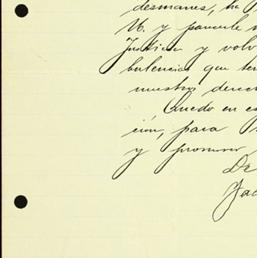 desmanes, tu
U. y ponerle
Justicia y volv
bulencias que ten
nuestros derec
Quedo en es
ción, para
y promover
De
Jac